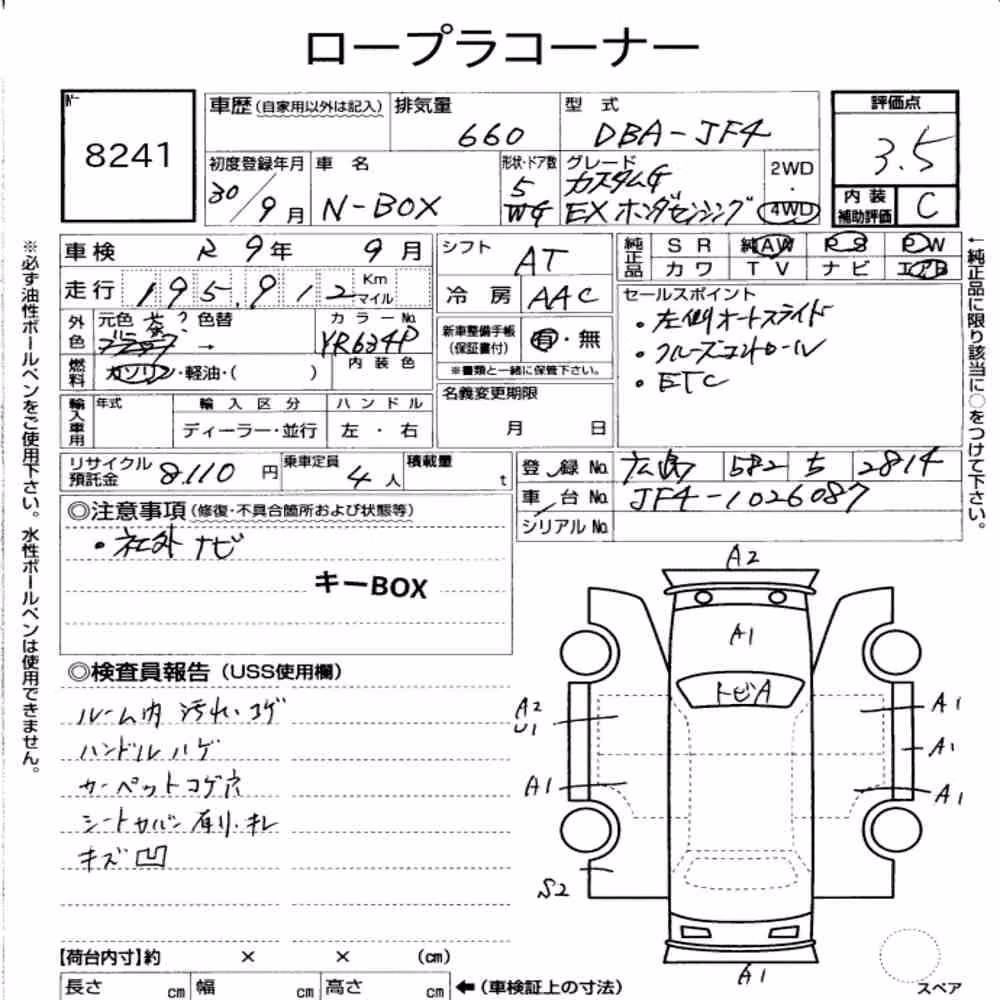 ロープラコーナー
No.
8241
車歴(自家用以外は記入)
排気量
660
型 式
DBA-JF4
評価点
3.5
初度登録年月
30/9月
車 名
N-BOX
形状・ドア数
5
WG
グレード
カスタムG
EX ホンダセンシング
2WD
・
4WD
内 装
補助評価
C
車検 R 9年 9月
走行 195,912 Km
マイル
外色
元色 茶? 色替
ブラック →
カラーNo.
YR634P
燃料
ガソリン・軽油・( )
内 装 色
輸入車用
年式
輸 入 区 分
ハ ン ド ル
ディーラー・並行
左 ・ 右
シフト AT
冷 房 AAC
新車整備手帳
(保証書付)
有・無
※書類と一緒に保管下さい。
名義変更期限
月 日
純正品
S R
純AW
P S
P W
カ ワ
T V
ナ ビ
エアB
セールスポイント
・左側オートスライド
・クルーズコントロール
・ETC
←純正品に限り該当に○をつけて下さい。
※必ず油性ボールペンをご使用下さい。水性ボールペンは使用できません。
リサイクル
預託金
8.110 円
乗車定員
4 人
積載量
t
登 録 No. 広島 582 ち 2814
車 台 No. JF4-1026087
シリアルNo.
◎注意事項(修復・不具合箇所および状態等)
・社外ナビ
キーBOX
◎検査員報告(USS使用欄)
ルーム内 汚れ.コゲ
ハンドルハゲ
カーペットコゲ穴
シートカバー有り.キレ
キズ凹
A2
A1
トビA
A2
U1
A1
A1
A1
A1
S2
A1
【荷台内寸】約 × × (cm)
長さ cm
幅 cm
高さ cm
←(車検証上の寸法)
スペア